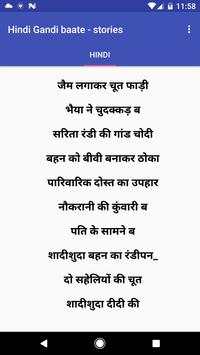 11:58
Hindi Gandi baate - stories
HINDI
जैम लगाकर चूत फाड़ी
भैया ने चुदक्कड़ ब
सरिता रंडी की गांड चोदी
बहन को बीवी बनाकर ठोका
पारिवारिक दोस्त का उपहार
नौकरानी की कुंवारी ब
पति के सामने ब
शादीशुदा बहन का रंडीपन_
दो सहेलियों की चूत
शादीशुदा दीदी की